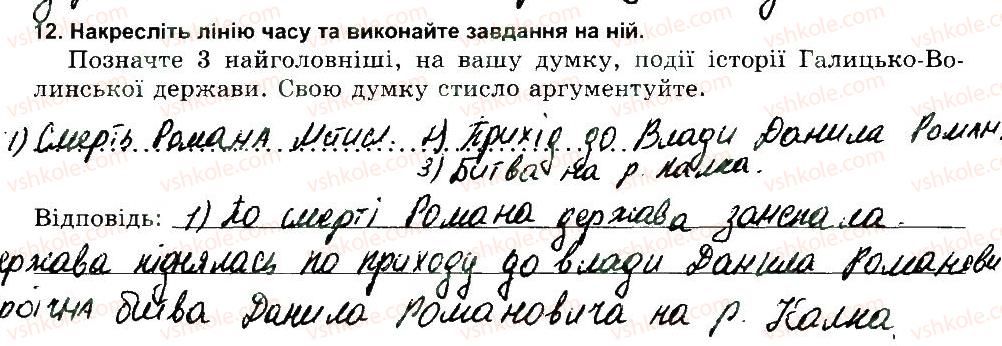 12. Накресліть лінію часу та виконайте завдання на ній.
Позначте 3 найголовніші, на вашу думку, події історії Галицько-Во-
линської держави. Свою думку стисло аргументуйте.
1) Смерть Романа Мтисл. 2) Прихід до Влади Данила Роман.
3) Битва на р. Калка.
Відповідь: 1) По смерті Романа держава занепала.
ержава піднялась по приходу до влади Данила Романови
роїчна битва Данила Романовича на р. Калка.